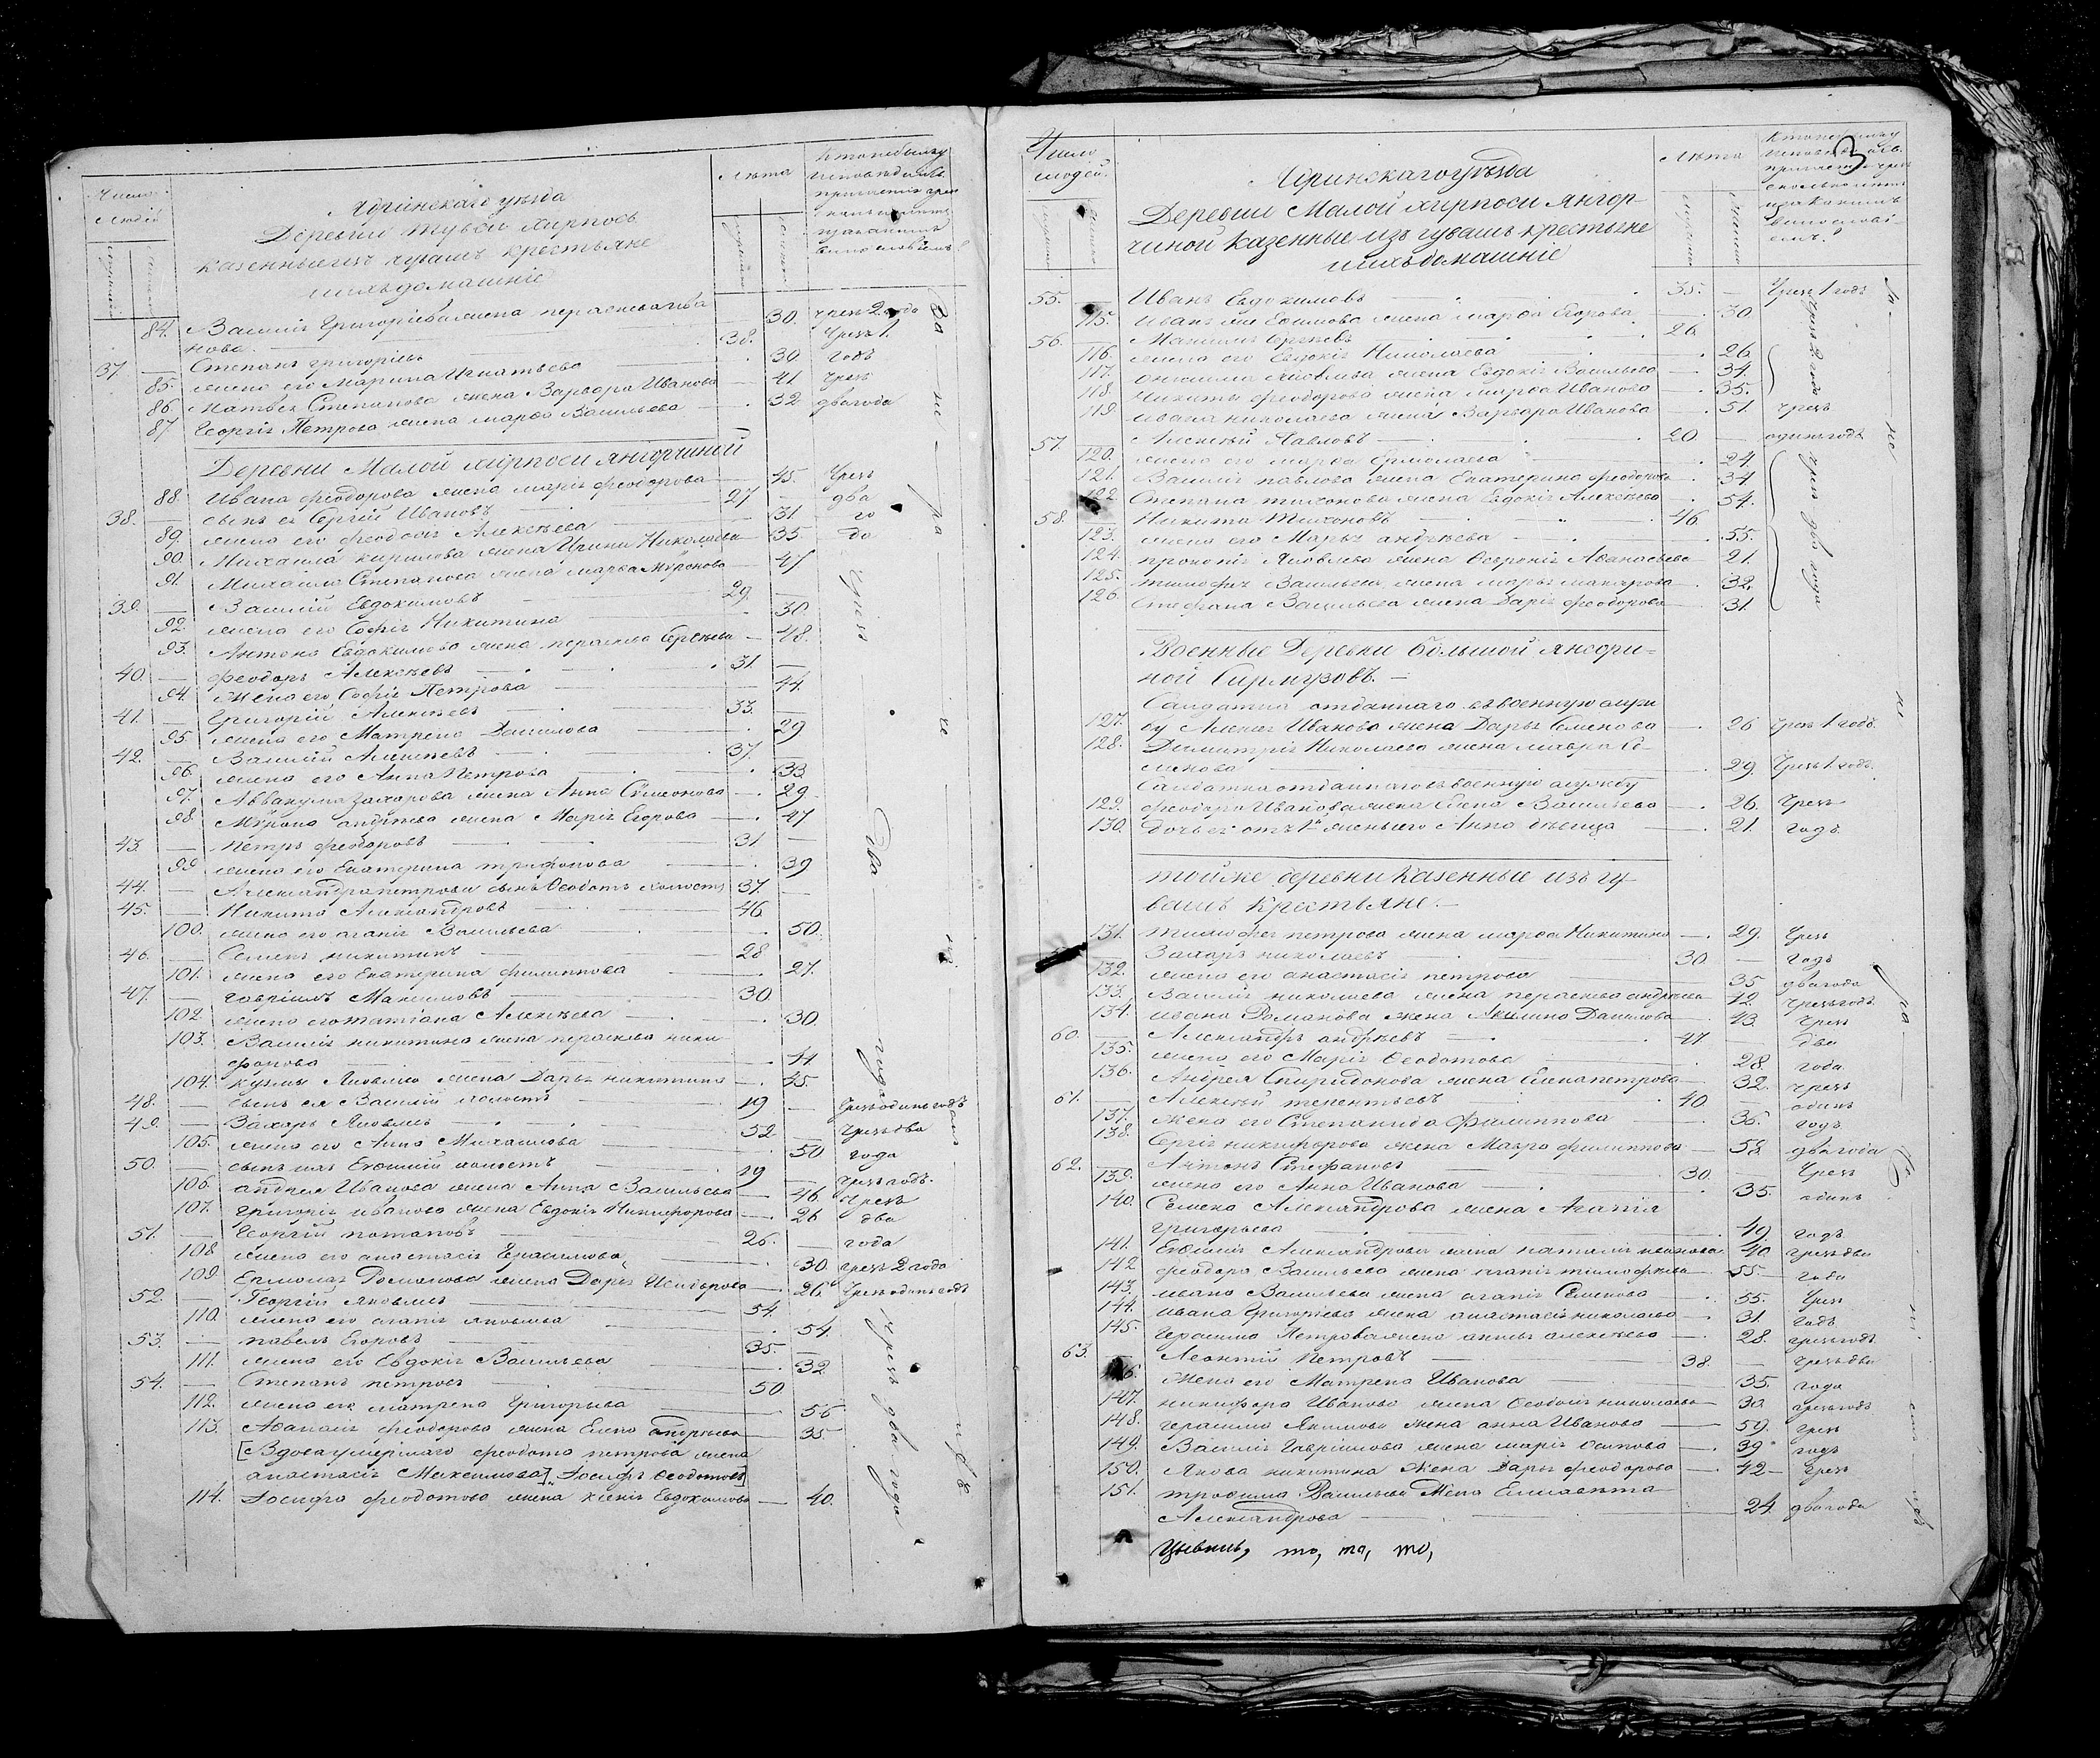 Число людей
Ядринскаго уѣзда
Деревни
Хирпось
казенные изъ чувашъ крестьяне
и ихъ домашніе
Лѣта
84. Василія Григорьева жена Параскева Ива
нова 30. чрезъ 2 года
37. — Степанъ Григорьевъ 38. Чрезъ 1.
85. жена его Марина Игнатьева 30. годъ
86. Матвея Степанова жена Варвара Иванова 41 чрезъ
87 Георгія Петрова жена Марфа Васильева 32 два года
Деревни Малой Хирпоси Янгорчиной
88. Ивана Феодорова жена Марія Феодорова 45. Чрезъ
38. — сынъ ея Сергѣй Ивановъ 27 — два
89. жена его Феодосія Алексѣева 31 го
90. Михаила Кирилова жена Ирина Николаева 35 да
91. Михаила Степанова жена Марфа Миронова 47
39. — Василій Евдокимовъ 29. —
92. жена его Софія Никитина 30
93. Антона Евдокимова жена Параскева Сергѣева 48.
40. — Феодоръ Алексѣевъ 31. —
94. Жена его Софія Петрова 44.
41. — Григорій Алексѣевъ 33. —
95. жена его Матрена Данилова 29
42. — Василій Алексѣевъ 37.
96. жена его Анна Петрова 33
97. Аввакума Захарова жена Анна Симеонова 29
98. Мирона Андрѣева жена Марія Егорова 47
43. — Петръ Феодоровъ 31 —
99 жена его Екатерина Трифонова 39
44. — Александра Петрова сынъ Феодотъ холостъ 37. —
45. — Никита Александровъ 46
100. жена его Агапія Васильева 50.
46. — Семенъ Никитинъ 28
101. жена его Екатерина Филиппова 27.
47. — Гавріилъ Максимовъ 30.
102. жена его Татіана Алексѣева 30.
103. Василія Никитина жена Параскева Ники
форова 44
104. Кузмы Яковлева жена Дарья Никитина 45.
48. — сынъ ея Василій холостъ 19 — Чрезъ одинъ годъ
49. — Захаръ Яковлевъ 52 — Чрезъ два
105. жена его Анна Михаилова 50 года
50. — сынъ ихъ Евфимій холостъ 19 — чрезъ годъ.
106. Андрея Иванова жена Анна Васильева 46 Чрезъ
107. Григорія Иванова жена Евдокія Никифорова 26 два
51. — Георгій Потаповъ 26. — года
108 жена его Анастасія Герасимова 30 чрезъ 2 года
109 Ермолая Романова жена Дарья Исидорова 26. Чрезъ одинъ годъ
52. — Георгій Яковлевъ 54.
110. жена его Агапія Яковлева 54.
53. — Павелъ Егоровъ 35.
111. жена его Евдокія Васильева 32
54. — Степанъ Петровъ 50
112. жена его Матрена Григорьева 56
113. Афанасія Феодорова жена Елена Андрѣева 35
[Вдова умершаго Феодота Петрова жена
Анастасія Максимова] [Іосифъ Феодотовъ]
114. Іосифа Феодотова жена Ксенія Евдокимова 40.
За не
ра
чрезъ
два
года
чрезъ два года
3
Число людей.
Ядринскаго уѣзда
Деревни Малой Хирпоси Янгор-
чиной казенные изъ чувашъ крестьяне
и ихъ домашніе
Лѣта
55. — Иванъ Евдокимовъ 35. — Чрезъ 1 годъ
115. Ивана Ефимова жена Марфа Егорова 30
56. — Максимъ Сергѣевъ 26.
116. жена его Евдокія Николаева 26.
117. Онисима Яковлева жена Евдокія Васильева 34.
118. Никиты Феодорова жена Марфа Иванова 35.
119. Ивана Николаева жена Варвара Иванова 51. чрезъ
чрезъ 2 года
57. — Алексѣй Павловъ 20. — одинъ годъ
120. жена его Марфа Ермолаева 24.
121. Василія Павлова жена Екатерина Феодорова 34
122. Степана Тихонова жена Евдокія Алексѣева 54.
58. — Никита Тихоновъ 46.
123. жена его Марья Андрѣева 55.
124. Прокопія Яковлева жена Февронія Афанасьева 21.
125. Тимофея Васильева жена Марья Макарова 32.
126. Стефана Васильева жена Дарія Феодорова 31.
чрезъ два года
Военные Деревни Большой Янгорчи=
ной Сирмузовъ.
Солдатка отданнаго въ военную служ
127. бу Алексѣя Иванова жена Дарья Семенова 26 чрезъ 1 годъ.
128. Димитрія Николаева жена Мавра Се-
менова 29. Чрезъ 1 годъ.
Солдатка отданнаго въ военную службу
129. Феодора Иванова жена Елена Васильева 26. Чрезъ
130. дочь его отъ 1й жены его Анна дѣвица 21. годъ
Той же деревни казенные изъ чу-
вашъ крестьяне.
131. Тимофея Петрова жена Марфа Никитина 29. Чрезъ
Захаръ Николаевъ 30 — годъ
132. жена его Анастасія Петрова 35 два года
133. Василія Николаева жена Параскева Андрѣева 42 чрезъ годъ
134. Ивана Романова жена Акилина Данилова 43. Чрезъ
60. — Александръ Андрѣевъ 47 — два
135. жена его Марія Феодотова 28. года
136. Андрея Спиридонова жена Елена Петрова 32. чрезъ
61. — Алексѣй Терентьевъ 40. — одинъ
137. жена его Степанида Филиппова 36. годъ
138. Сергія Никифорова жена Мавра Филиппова 58 два года
62. — Антонъ Стефановъ 30. — Чрезъ
139. жена его Анна Иванова 35. одинъ
140. Семена Александрова жена Агапія
Григорьева 49. годъ
141. Евфимія Александрова жена Наталія Иванова 40. чрезъ два
142 Феодора Васильева жена Агапія Тимофѣева 55. года
143. Ивана Васильева жена Агапія Семенова 55. Чрезъ
144. Ивана Григорьева жена Анастасія Николаева 31. годъ
145. Герасима Петрова жена Анна Алексѣева 28. чрезъ годъ
63. — Леонтій Петровъ 38. — чрезъ два
146. Жена его Матрена Иванова 35. года
147. Никифора Иванова жена Феодосія Николаева 30. чрезъ годъ
148. Герасима Якимова жена Анна Иванова 59. чрезъ
149. Василія Гавріилова жена Марія Осипова 39 годъ
150. Якова Никитина жена Дарья Феодорова 42 — Чрезъ
151. Трофима Васильева Жена Елисавета
Александрова 24. два года
то, то, то,